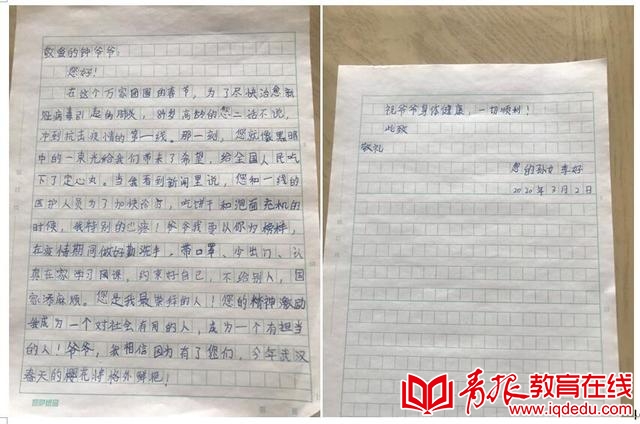 敬爱的钟爷爷:
您好!
在这个万家团圆的春节,为了尽快治愈新
冠病毒引起的肺炎,钟岁高龄的您二话不说,
冲到抗击疫情的第一线。那一刻,您就像黑暗
中的一束光给我们带来了希望,给全国人民吃
下了定心丸。当我看到新闻里说,您和一线的
医护人员为了加快诊断,吃饼干和泡面充饥的
时候,我特别的心疼!爷爷我要以你为榜样,
在疫情期间做好勤洗手、带口罩、少出门、认
真在家学习网课,约束好自己,不给别人,国
家添麻烦。您是我最崇拜的人!您的精神激励
我成为一个对社会有用的人,成为一个有担当
的人!爷爷,我相信因为有了您们,今年武汉
春天的樱花将格外鲜艳!
祝爷爷身体健康,一切顺利!
此致
敬礼
您的孙女 李好
2020年3月2日
青报教育在线
www.iqdedu.com